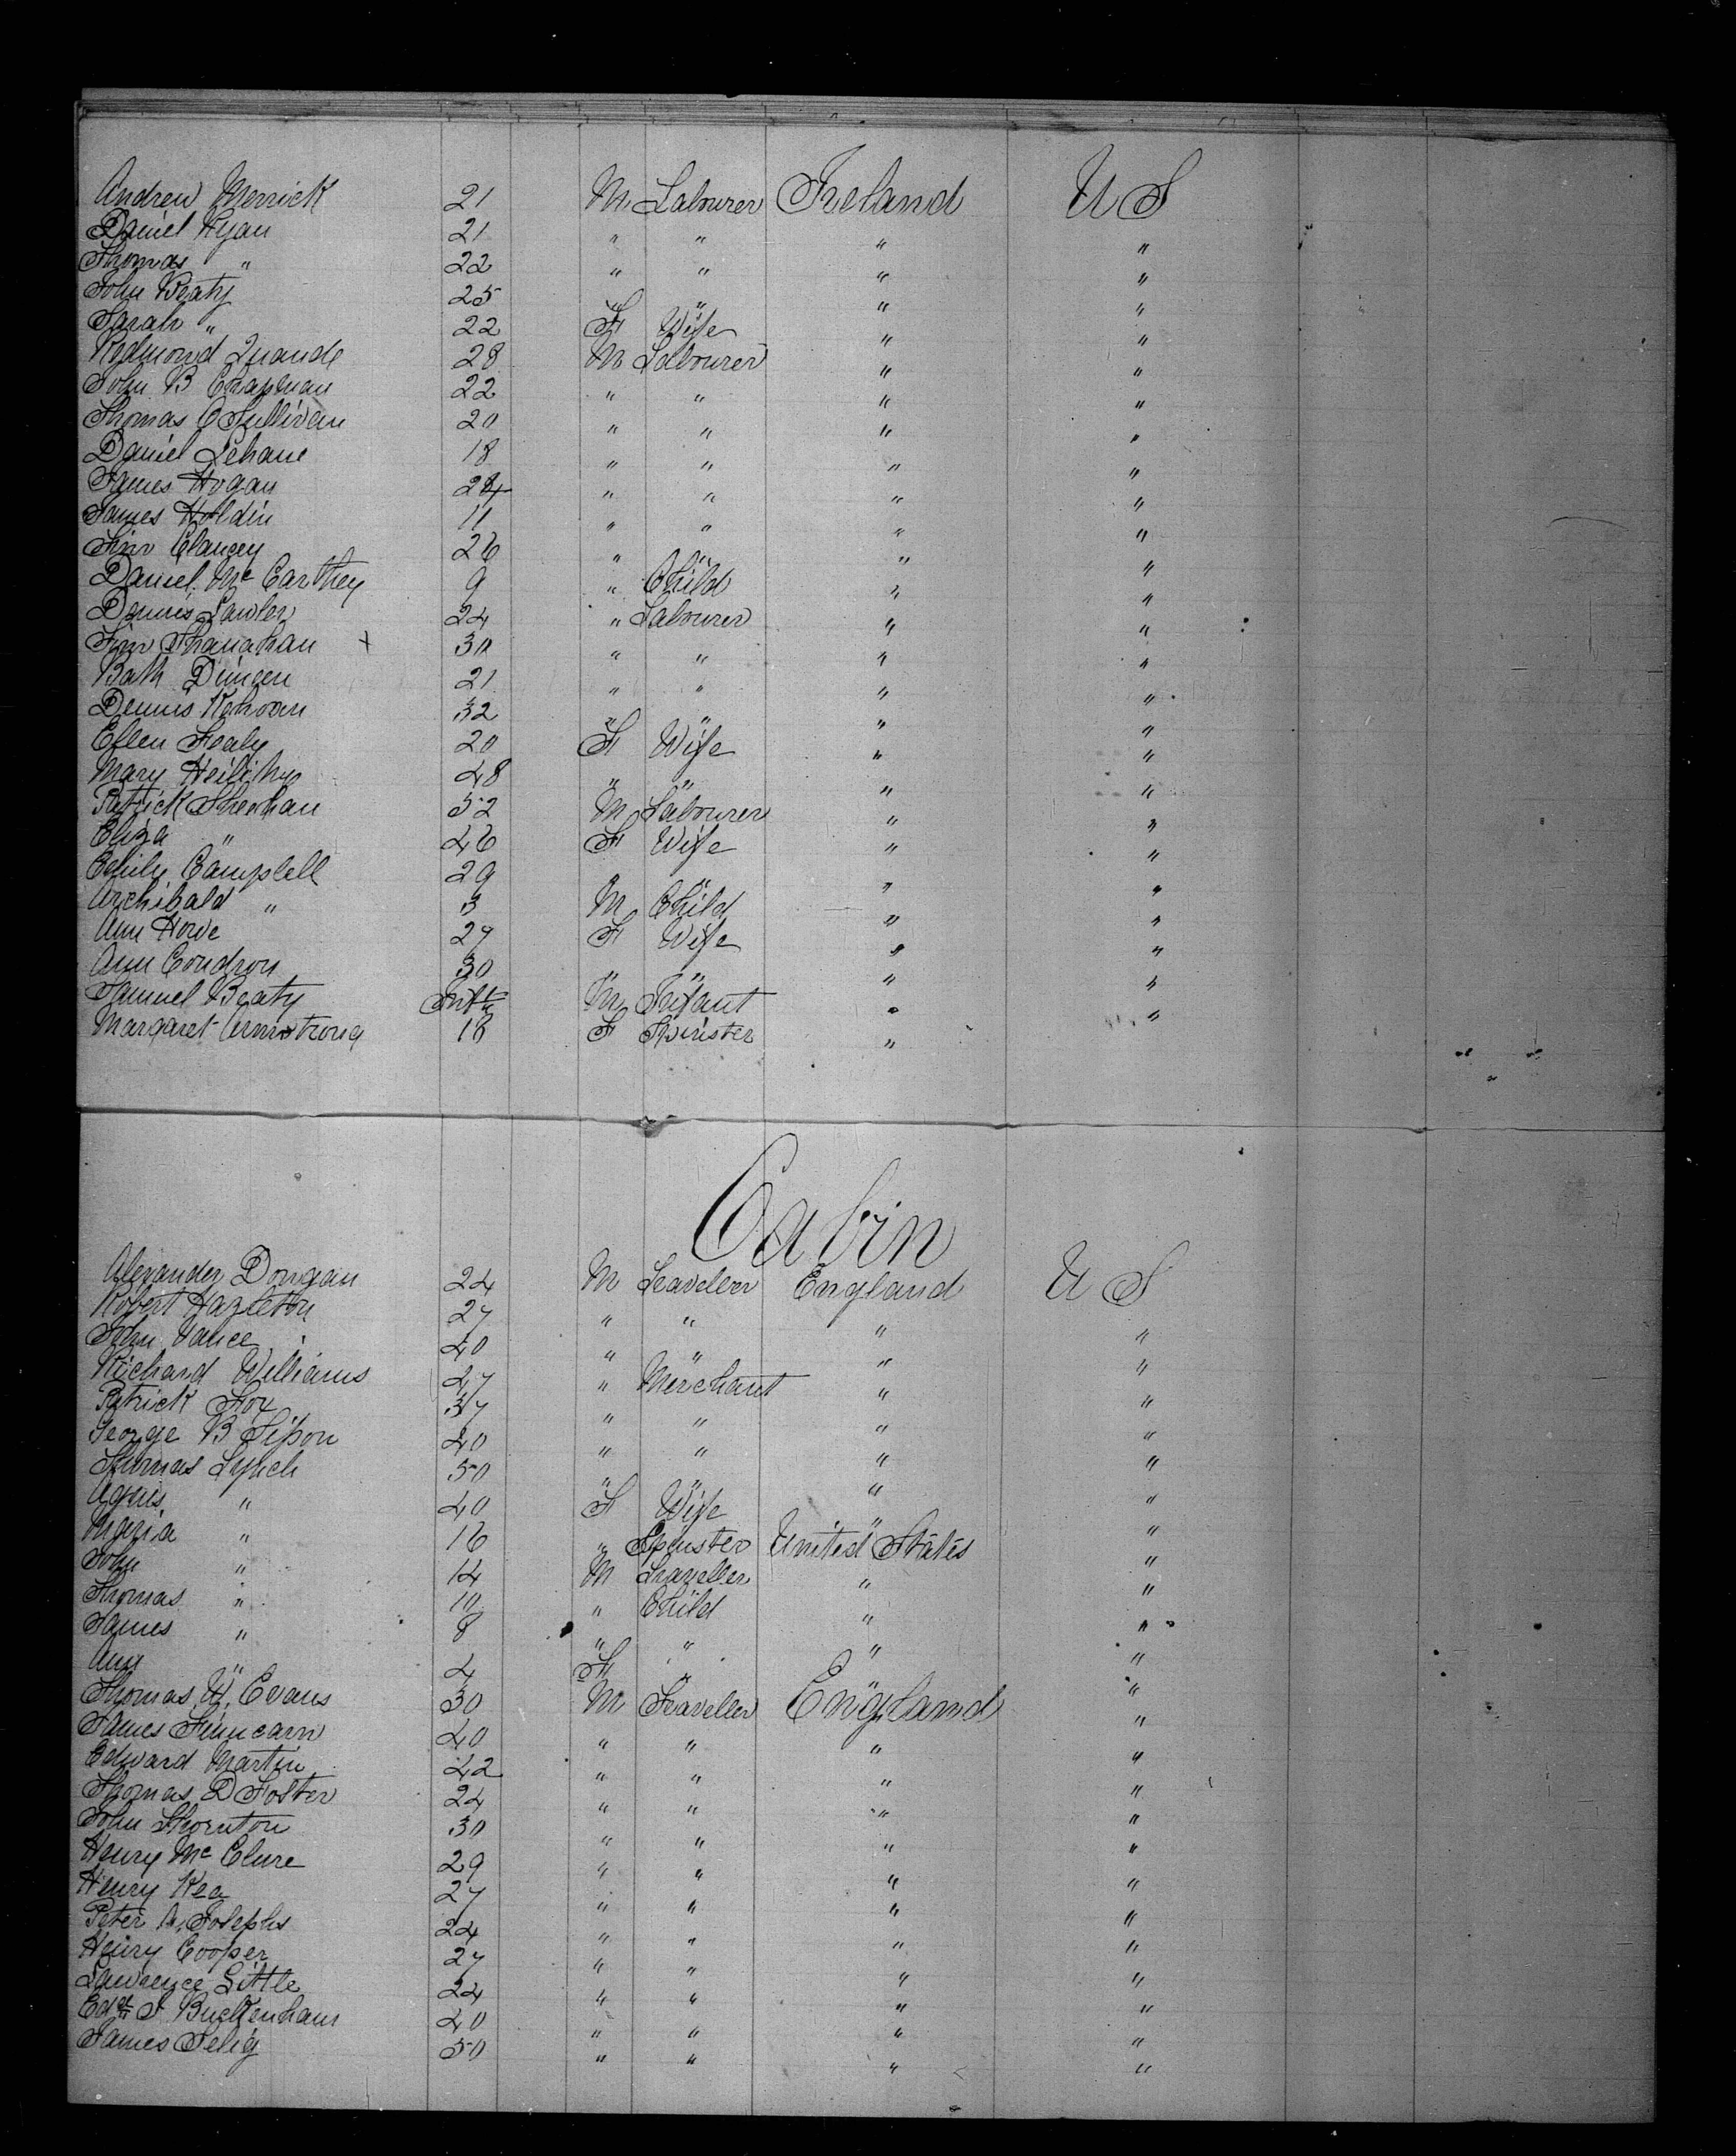 Andrew Merrick 21 M Labourer Ireland U S
Daniel Ryan 21 " " " "
Thomas " 22 " " " "
John Beaty 25 " " " "
Sarah " 22 F Wife " "
Redmond 28 M Labourer " "
John B Chapman 22 " " " "
Thomas O Sullivan 20 " " " "
Daniel Lehane 18 " " " "
James Hogan 24 " " " "
James Holdin 11 " " " "
Jim Clancey 26 " " " "
Daniel Mc Carthey 9 " Child " "
Dennis Lawler 24 " Labourer " "
Jim Shanahan x 30 " " " "
Bath Dingen 21 " " " "
Dennis 32 " " " "
Ellen Healy 20 F Wife " "
Mary 48 " " " "
Patrick Sheehan 52 M Labourer " "
Eliza " 46 F Wife " "
Emily Campbell 29 " " " "
Archibald " 3 M Child " "
Ann Howe 27 F Wife " "
Ann Condron 30 " " " "
Samuel Beaty Inft M Infant " "
Margaret Armstrong 18 F Spinster "
Cabin
Alexander Dongan 24 M Traveller England U S
Robert Hazleton 27 " " " "
John Vance 40 " " " "
Richard Williams 47 " Merchant " "
Patrick Fox 37 " " " "
George B Sisson 40 " " " "
Thomas Lynch 50 " " " "
Agnes " 40 F Wife " "
Maria " 16 " Spinster United States "
John " 14 M Traveller " "
Thomas " 10 " Child " "
James " 8 " " " "
Ann " 4 F " " "
Thomas W. Evans 30 M Traveller England "
James Finncarn 40 " " " "
Edward Martin 42 " " " "
Thomas D Foster 24 " " " "
John Thornton 30 " " " "
Henry Mc Clure 29 " " " "
Henry Kea 27 " " " "
Peter A. Josephs 24 " " " "
Henry Cooper 27 " " " "
Lawrence Little 24 " " " "
Edwd J Buckenham 40 " " " "
James Selig 50 " " " "